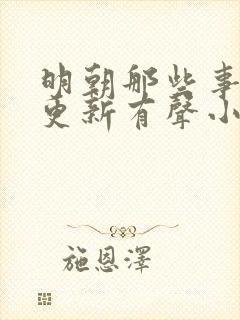 明朝那些事
更新有聲小
施恩澤